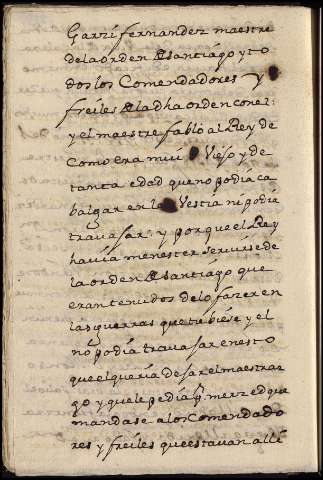 Garzi fernandez maestre
dela orden de santiago y to
dos los Comendadores y
freiles de la dha orden con el:
y el maestre fablo al Rey de
Como era mui Viejo y de
tanta edad que no podia ca
balgar en la Vestia ni podia
travajar: y porque el Rey
havia menester servirse de
la orden de santiago que
eran tenudos de lo fazer en
las guerras que tubiese y el
no podia travajar en esto
que el queria dejar el maestraz
go y que le pedia pr. merzed que
mandase a los Comendado
res y freiles que estavan alli